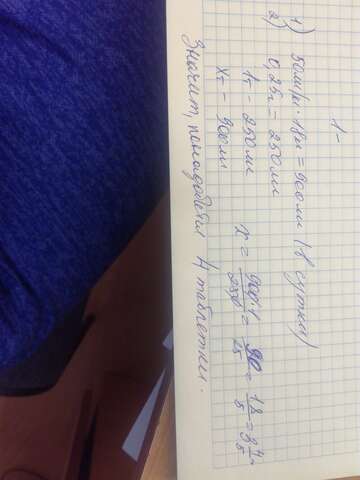 1-
1) 50мг/кг · 18кг = 900мг (в сутки)
2) 0,25г = 250мг
1т - 250мг
xт - 900мг
x = 900·1/250 = 90/25 = 18/5 = 3 4/5
Значит, понадобится 4 таблетки.